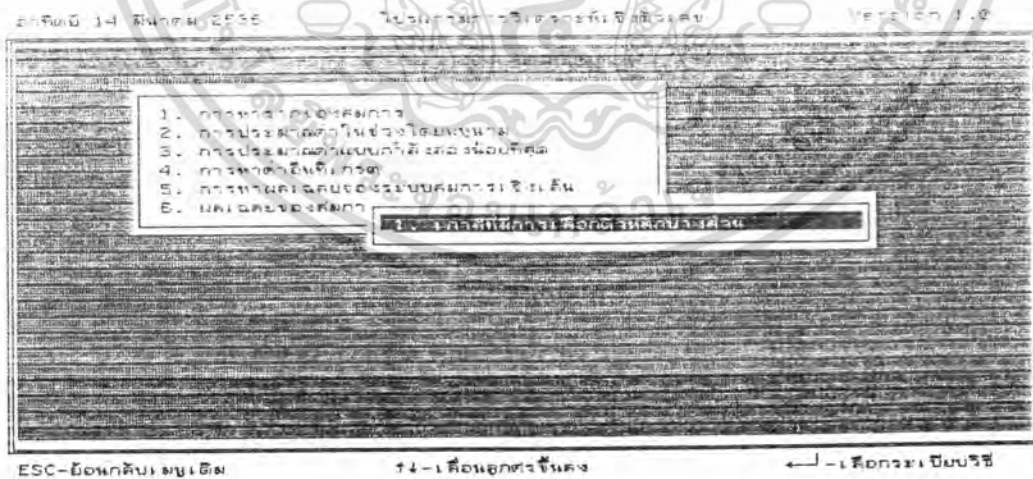 อาทิตย์ 14 มีนาคม 2536 โปรแกรมการวิเคราะห์เชิงตัวเลข Version 1.0
1. การหารากของสมการ
2. การประมาณค่าในช่วงโดยพหุนาม
3. การประมาณค่าแบบกำลังสองน้อยที่สุด
4. การหาค่าอินทิเกรต
5. การหาผลเฉลยของระบบสมการเชิงเส้น
6. ผลเฉลยของสมกา
1.
ESC-ย้อนกลับเมนูเดิม ↑↓-เลื่อนลูกศรขึ้นลง ←┘-เลือกระเบียบวิธี